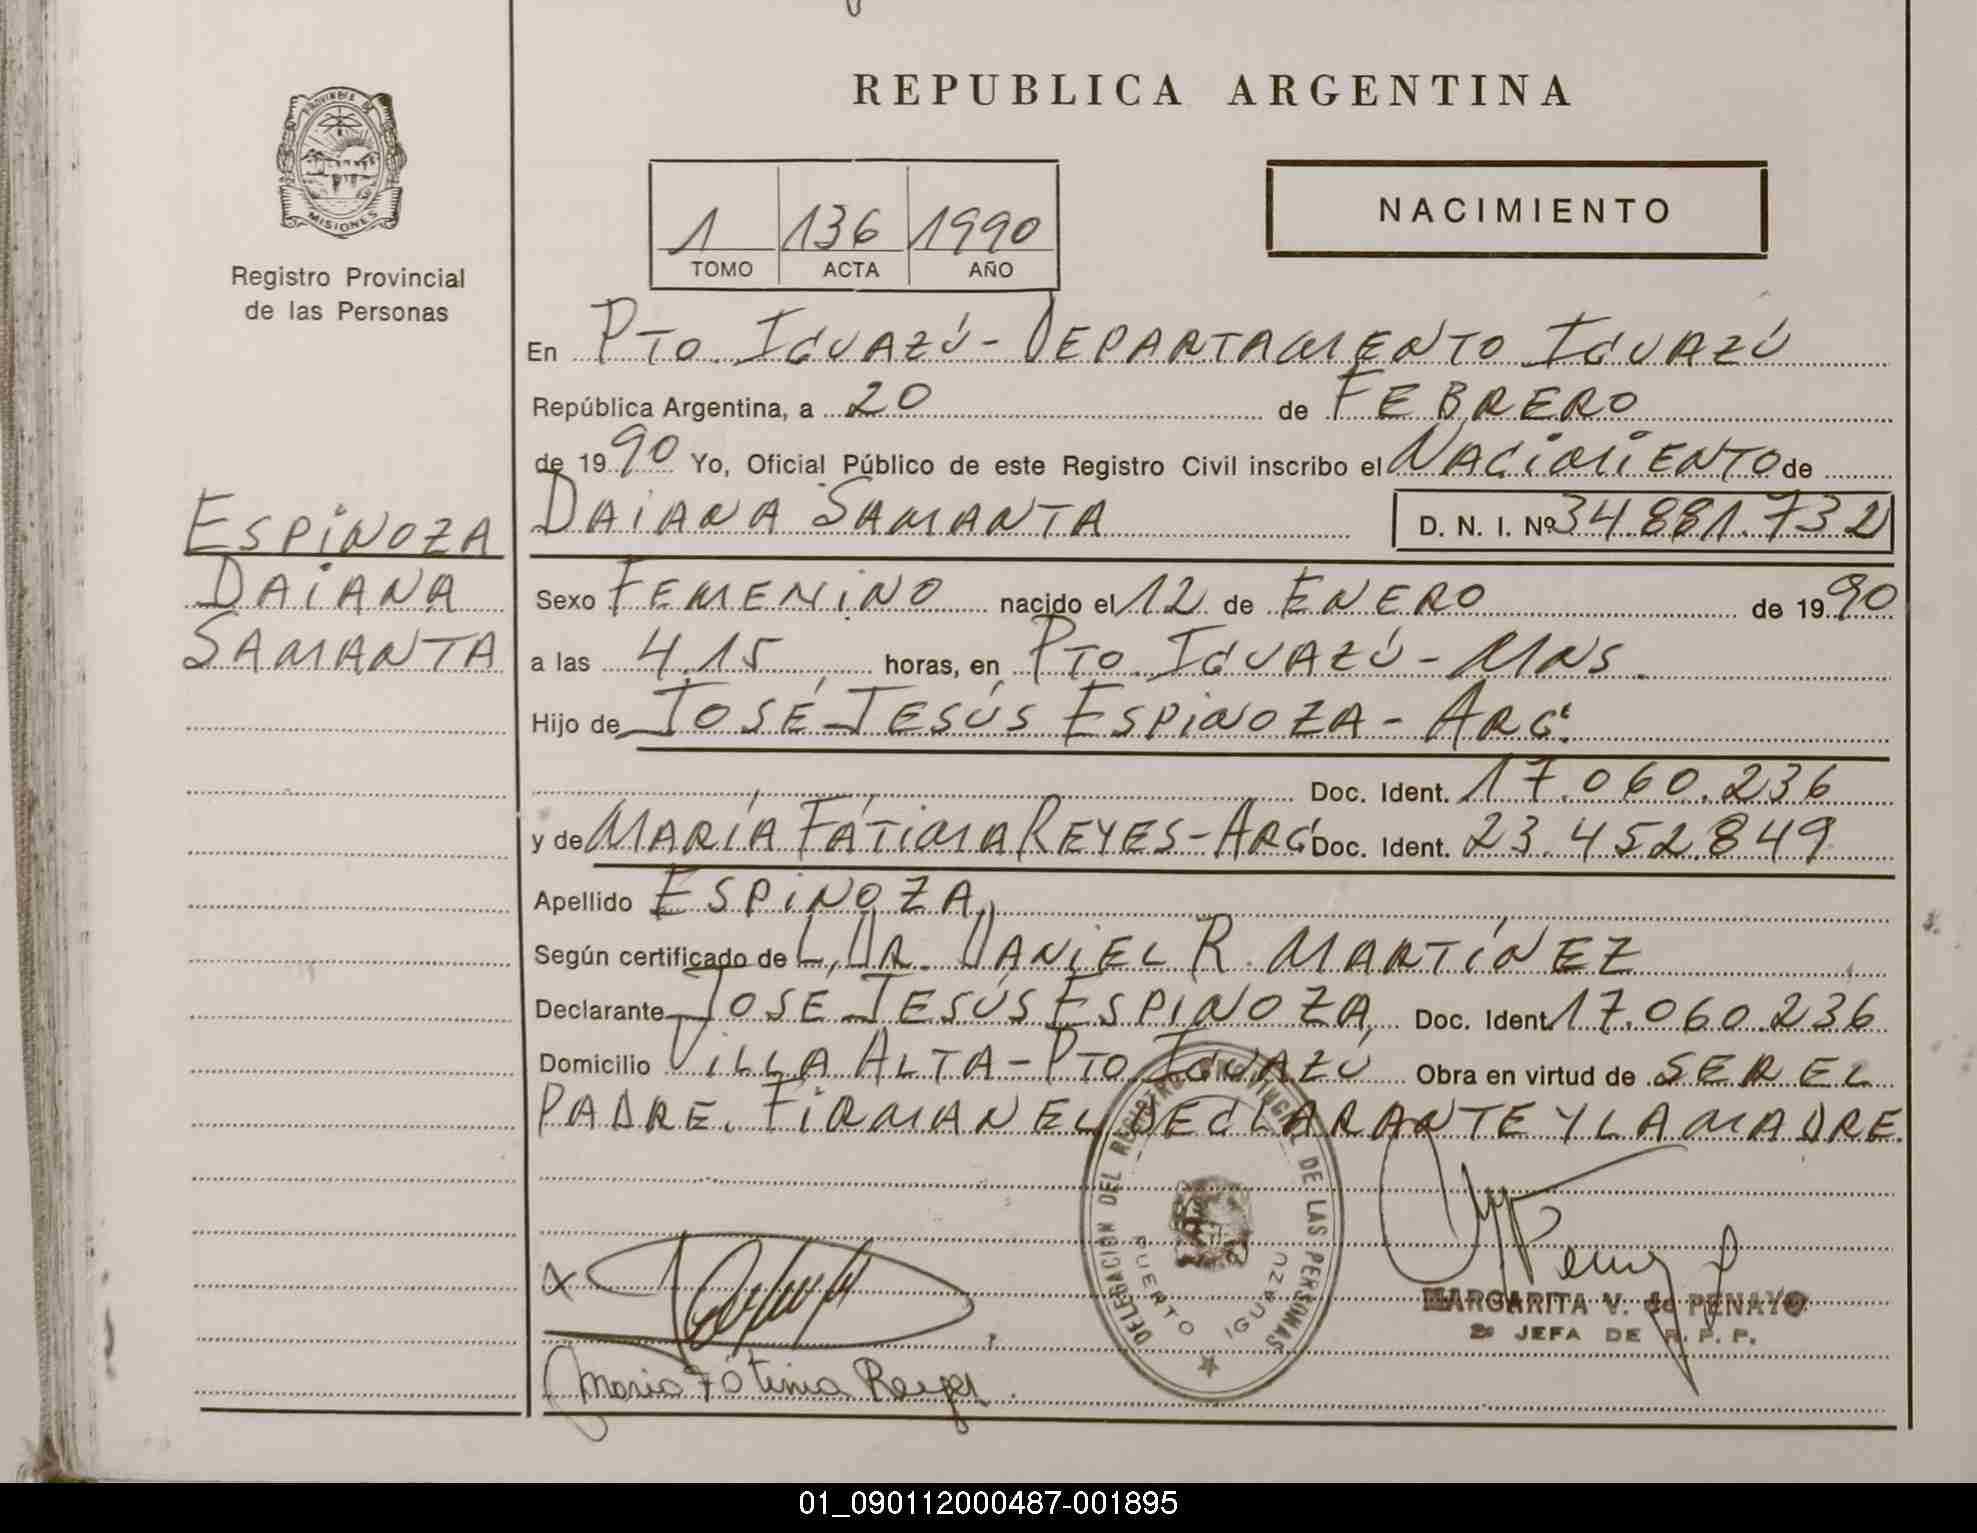 PROVINCIA DE
MISIONES
Registro Provincial
de las Personas
ESPINOZA
DAIANA
SAMANTA
REPUBLICA ARGENTINA
1 136 1990
TOMO ACTA AÑO
NACIMIENTO
En PTO. IGUAZÚ - DEPARTAMENTO IGUAZÚ
República Argentina, a 20 de FEBRERO
de 1990 Yo, Oficial Público de este Registro Civil inscribo el NACIMIENTO de
DAIANA SAMANTA D. N. I. Nº 34.881.732
Sexo FEMENINO nacido el 12 de ENERO de 1990
a las 4.15 horas, en PTO. IGUAZÚ - MNS.
Hijo de JOSÉ JESÚS ESPINOZA - ARG.
Doc. Ident. 17.060.236
y de MARÍA FÁTIMA REYES - ARG. Doc. Ident. 23.452.849
Apellido ESPINOZA
Según certificado de L, DR. DANIEL R. MARTÍNEZ
Declarante JOSE JESÚS ESPINOZA, Doc. Ident. 17.060.236
Domicilio VILLA ALTA - PTO IGUAZÚ Obra en virtud de SER EL
PADRE. FIRMAN EL DECLARANTE Y LA MADRE.
DELEGACION DEL REGISTRO PROVINCIAL DE LAS PERSONAS
PUERTO IGUAZU
MARGARITA V. de PENAYO
2º JEFA DE R. P. P.
Maria Fátima Reyes.
01_090112000487-001895